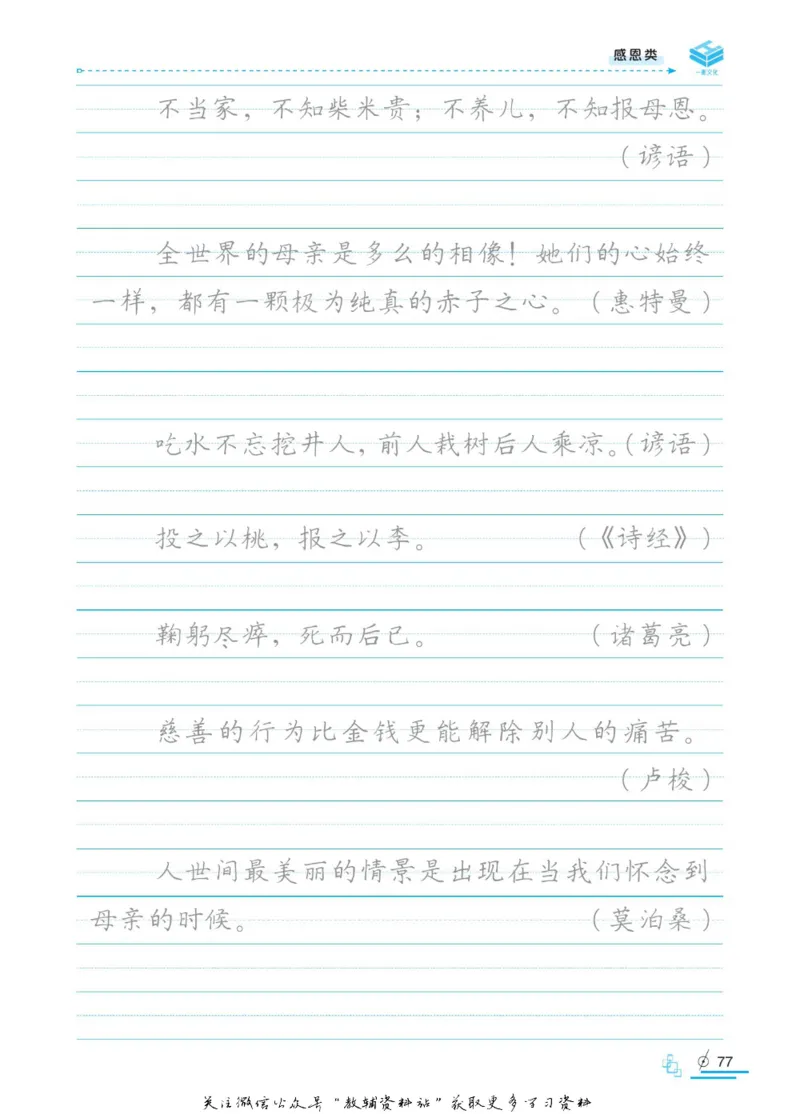 感恩类
一鸢文化
不当家，不知柴米贵；不养儿，不知报母恩。
（谚语）
全世界的母亲是多么的相像！她们的心始终
一样，都有一颗极为纯真的赤子之心。（惠特曼）
吃水不忘挖井人，前人栽树后人乘凉。（谚语）
投之以桃，报之以李。（《诗经》）
鞠躬尽瘁，死而后已。（诸葛亮）
慈善的行为比金钱更能解除别人的痛苦。
（卢梭）
人世间最美丽的情景是出现在当我们怀念到
母亲的时候。（莫泊桑）
77
关注微信公众号“教辅资料站”获取更多学习资料